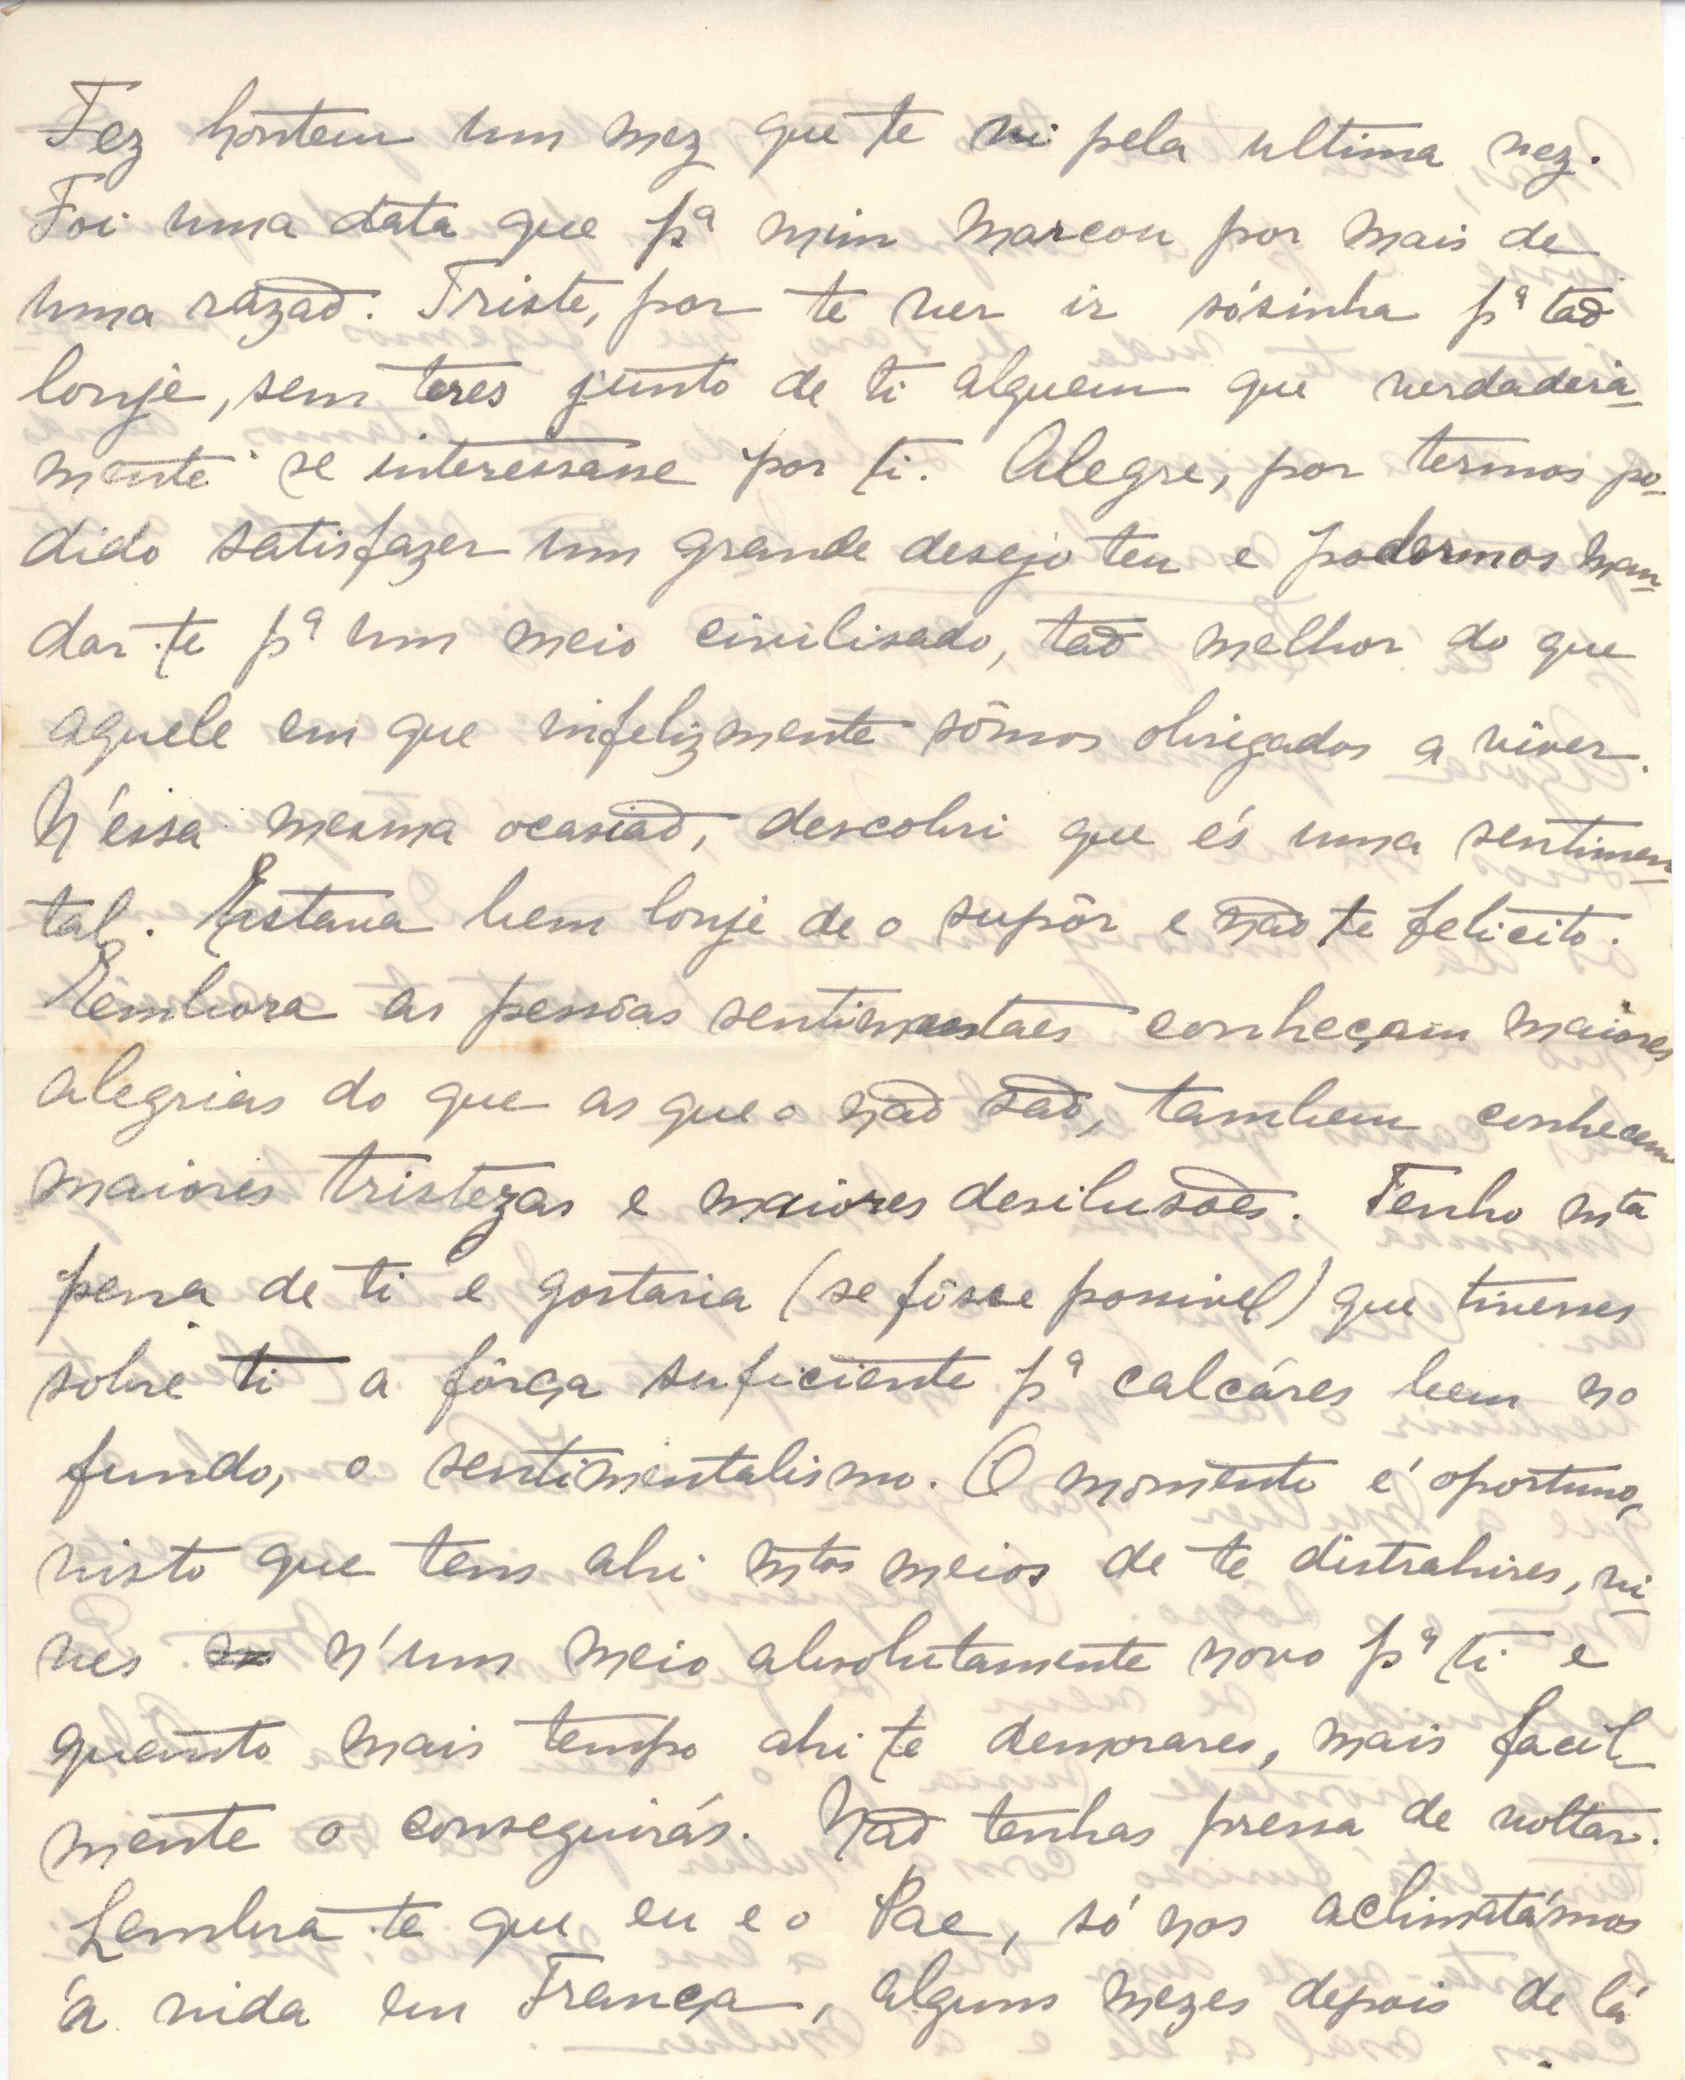 Fez hontem um mez que te vi pela ultima vez.
Foi uma data que pª mim marcou por mais de
uma razaõ. Triste, por te ver ir sósinha pª taõ
lonje, sem teres junto de ti alguem que verdadeira-
mente se interessasse por ti. Alegre, por termos po-
dido satisfazer um grande desejo teu e podermos man-
dar-te pª um meio civilisado, taõ melhor do que
aquele em que infelizmente sômos obrigados a viver.
N'éssa mesma ocasiaõ, descobri que és uma sentimen-
tal. Estava bem lonje de o supôr e naõ te felicito.
Embora as pessôas sentimentaes conheçam maiores
alegrias do que as que o naõ saõ, tambem conhecem
maiores tristezas e maiores desilusões. Tenho mta
pena de ti e gostaria (se fôsse possivel) que tivesses
sobre ti a fôrça suficiente pª calcáres bem no
fundo, o sentimentalismo. O momento é oportuno,
visto que tens ahi mtos meios de te distrahires, vi-
ves n'um meio absolutamente novo pª ti e
quanto mais tempo ahi te demorares, mais facil-
mente o conseguirás. Naõ tenhas pressa de voltar.
Lembra-te que eu e o Pae, só nos aclimatámos
á vida em França, alguns mezes depois de lá